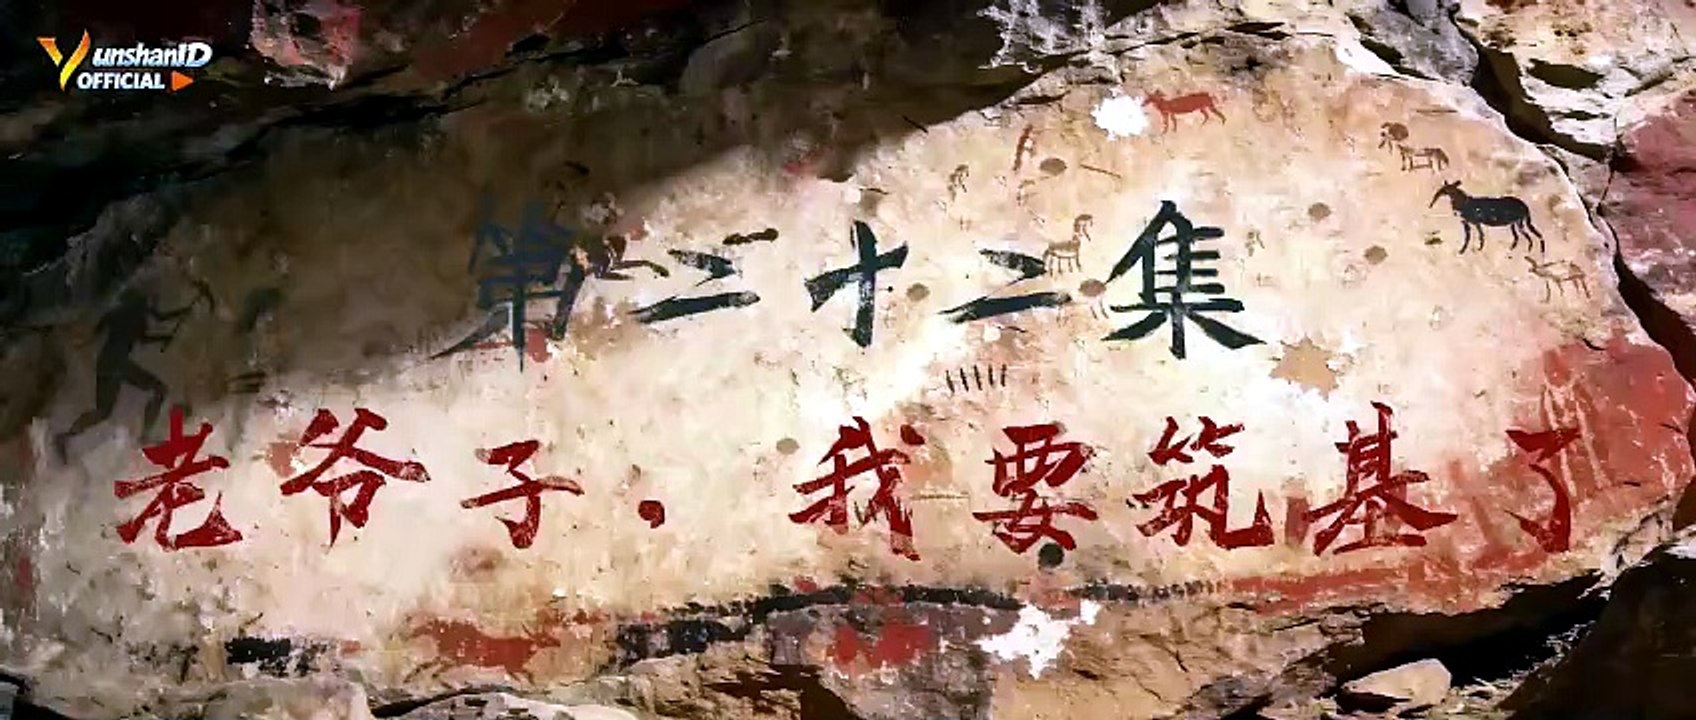 YunshanID
OFFICIAL
第二十二集
老爷子，我要筑基了